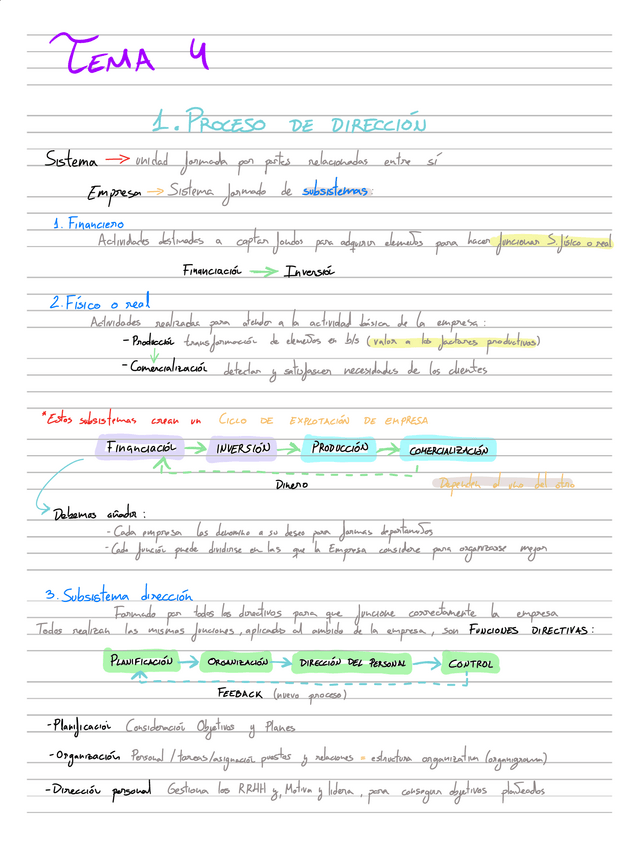 TEMA 4
1. PROCESO DE DIRECCIÓN
Sistema → unidad formada por partes relacionadas entre sí
Empresa → Sistema formado de subsistemas
1. Financiero
Actividades destinadas a captar fondos para adquirir elementos para hacer funcionar S. físico o real
Financiación → Inversión
2. Físico o real
Actividades realizadas para atender a la actividad básica de la empresa:
- Producción transformación de elementos en b/s (valor a los factores productivos)
- Comercialización detectan y satisfascen necesidades de los clientes
*Estos subsistemas crean un CICLO DE EXPLOTACIÓN DE EMPRESA
FINANCIACIÓN → INVERSIÓN → PRODUCCIÓN → COMERCIALIZACIÓN
Dinero
Dependen el uno del otro
Debemos añadir:
- Cada empresa los denomina a su deseo para formar departamentos
- Cada función puede dividirse en las que la Empresa considere para organizarse mejor
3. Subsistema dirección
Formado por todos los directivos para que funcione correctamente la empresa
Todos realizan las mismas funciones, aplicadas al ambido de la empresa, son FUNCIONES DIRECTIVAS:
PLANIFICACIÓN → ORGANIZACIÓN → DIRECCIÓN DEL PERSONAL → CONTROL
FEEBACK (nuevo proceso)
- Planificación Consideración Objetivos y Planes
- Organización Personal / tareas / asignación puestos y relaciones = estructura organizativa (organigrama)
- Dirección personal Gestiona los RRHH y, Motiva y lidera, para conseguir objetivos planteados